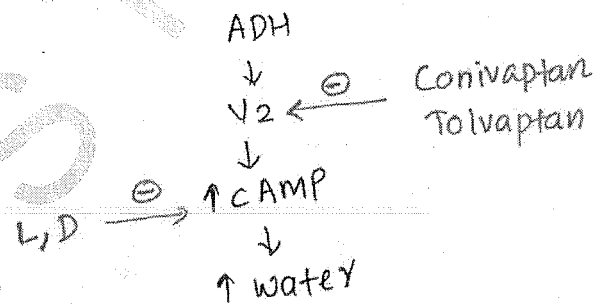 ADH
↓
V2 ← ⊖ Conivaptan
Tolvaptan
↓
L, D ⊖ → ↑ cAMP
↓
↑ water